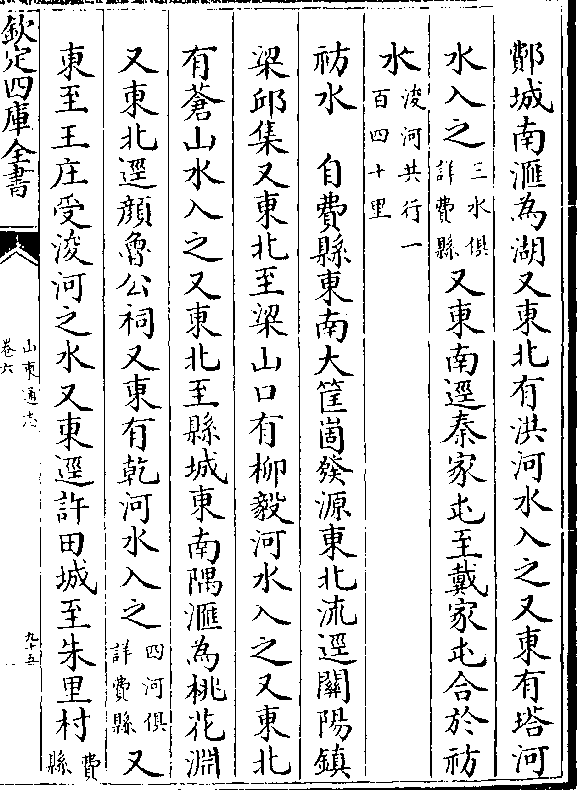 鄪城南滙為湖又東北有洪河水入之又東有塔河
水入之三水俱詳費縣又東南逕秦家屯至戴家屯合於祊
水浚河共行一百四十里
祊水　自費縣東南大筐崮發源東北流逕關陽鎮
梁邱集又東北至梁山口有柳毅河水入之又東北
有蒼山水入之又東北至縣城東南隅滙為桃花淵
又東北逕顔魯公祠又東有乾河水入之四河俱詳費縣又
東至王庄受浚河之水又東逕許田城至朱里村費縣
欽定四庫全書
山東通志
卷六
九十五